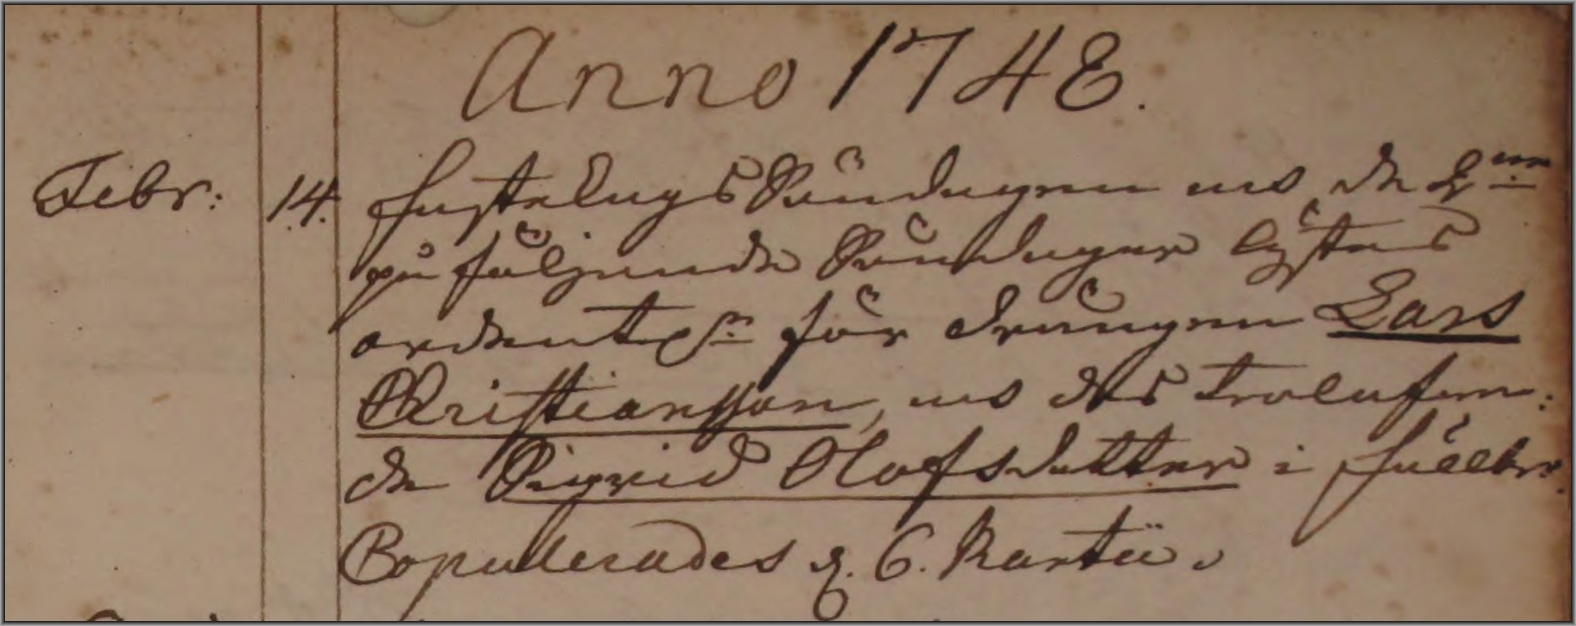 Anno 1748.
Febr: 14. fastelags Söndagen ock de 2ne
på följande Söndagar lystes
ordentl:n för drängen Lars
Christiansson, ock des trolofwa:
de Sigrid Olofsdotter i
Copulerades d. 6. Martii.